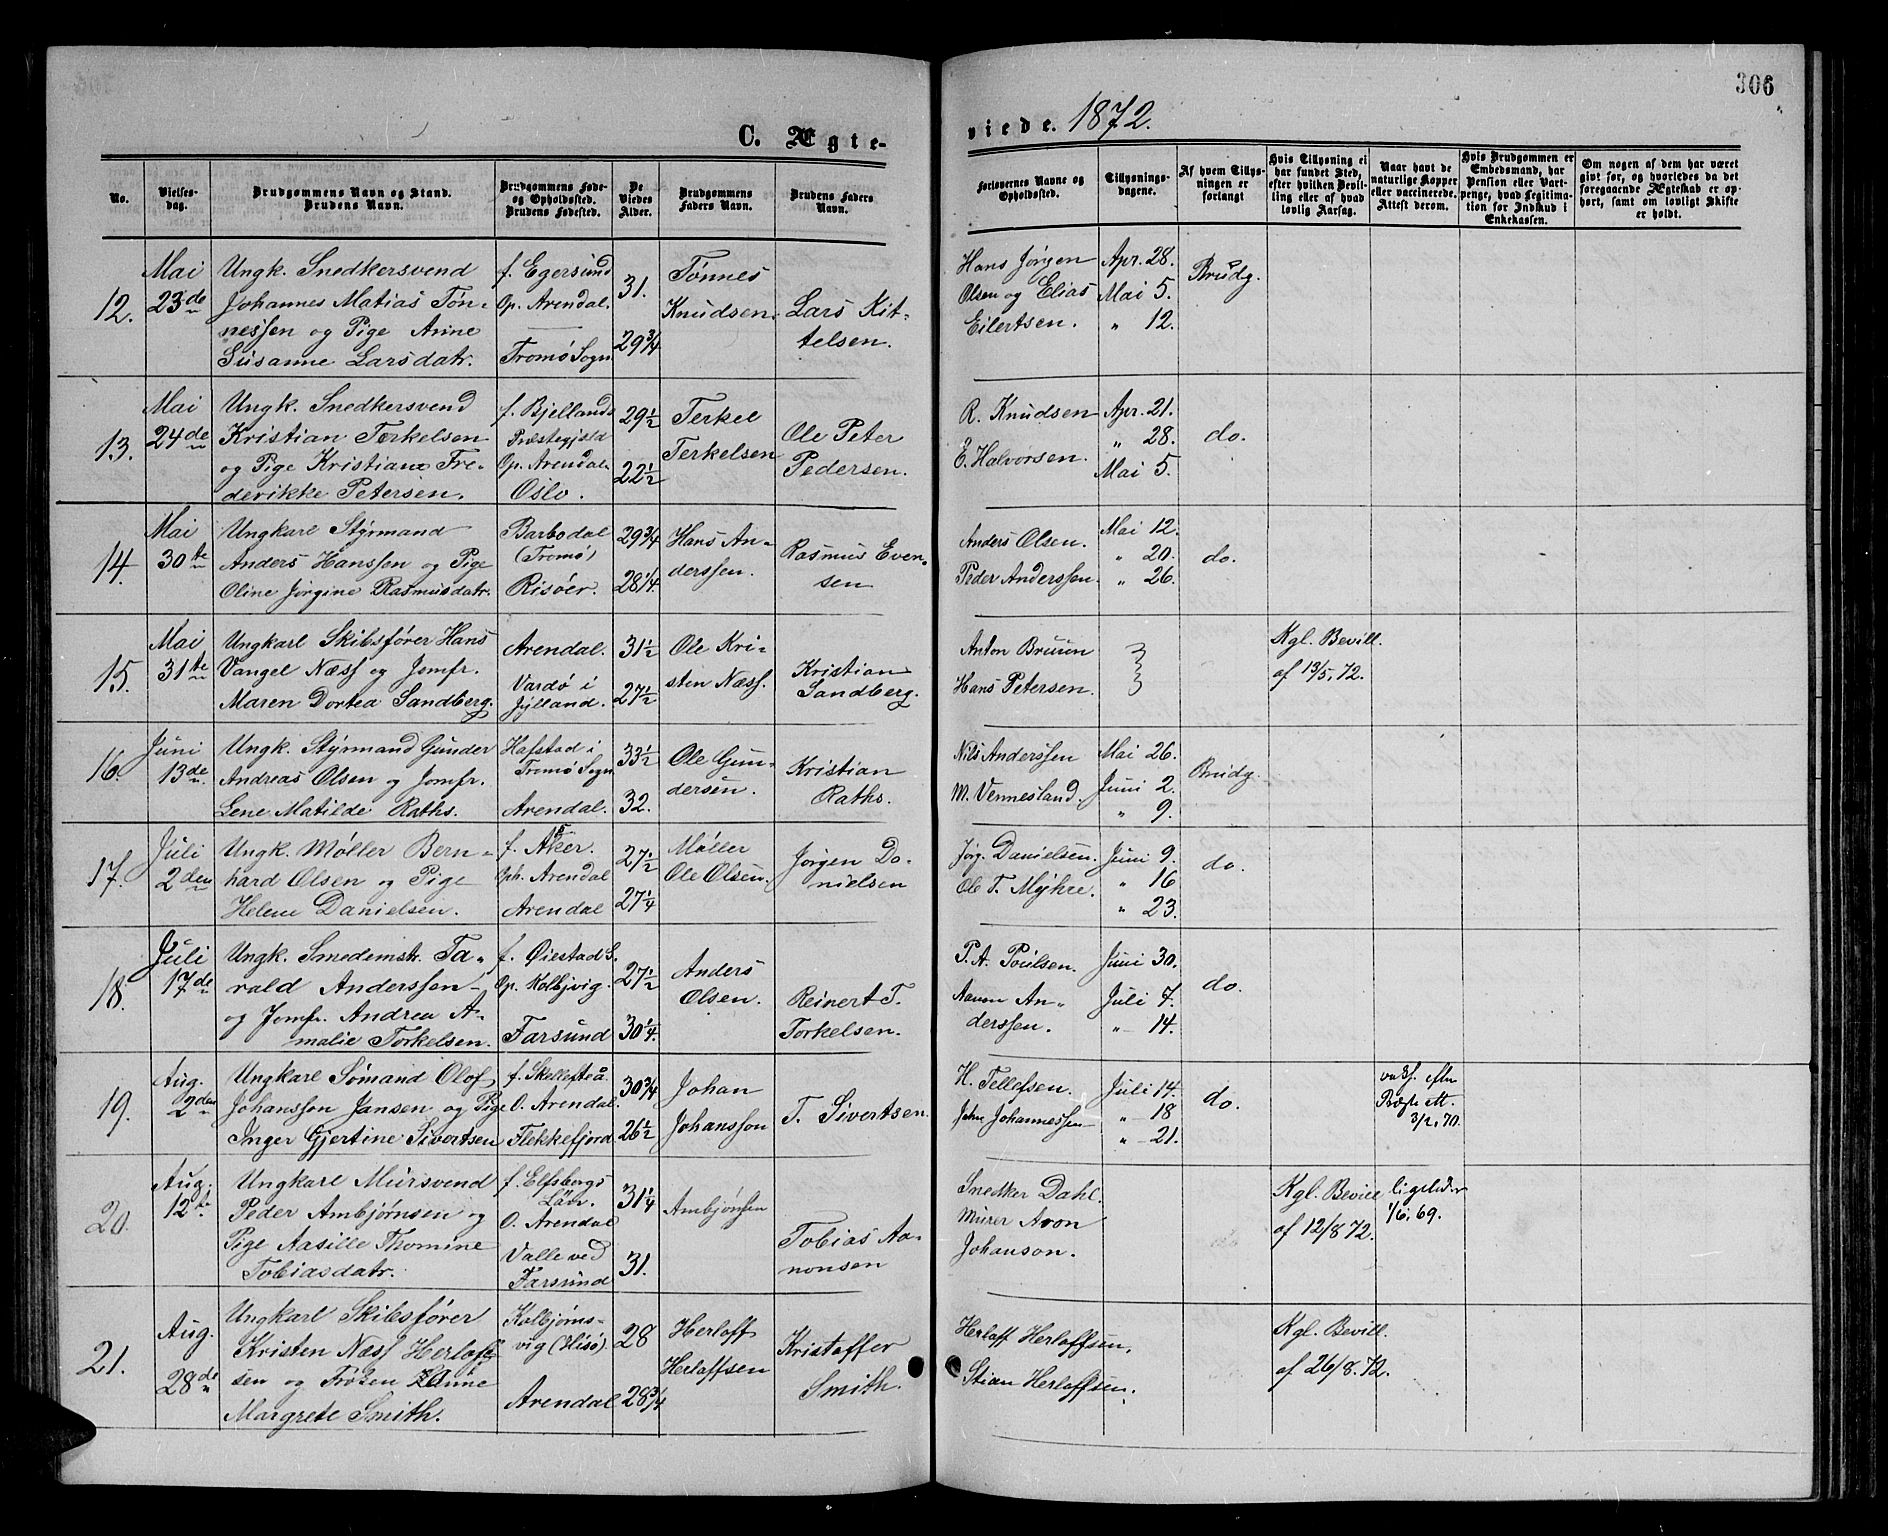 306
C. Ægte-
viede. 1872.
No.
Vielses-
dag.
Brudgommens Navn og Stand.
Brudens Navn.
Brudgommens Føde-
og Opholdssted.
Brudens Fødested.
De
Viedes
Alder.
Brudgommens
Faders Navn.
Brudens Faders
Navn.
Forlovernes Navne og
Opholdssted.
Tillysnings-
dagene.
Af hvem Tillys-
ningen er
forlangt
Hvis Tillysning ei
har fundet Sted,
efter hvilken Bevil-
ling eller af hvad
lovlig Aarsag.
Naar havt de
naturlige Kopper
eller vaccinerede.
Attest derom.
Hvis Brudgommen er
Embedsmand, har
Pension eller Vart-
penge, hvad Legitima-
tion for Indskud i
Enkekassen.
Om nogen af dem har været
gift før, og hvorledes da det
foregaaende Ægteskab er op-
hørt, samt om lovligt Skifte
er holdt.
12.
Mai
23de
Ungk. Snedkersvend
Johannes Matias Tøn-
nessen og Pige Anne
Susanne Larsdatr.
f. Egersund
Op. Arendal.
Tromø Sogn
31.
29 3/4
Tønnes
Knudsen.
Lars Kit-
telsen.
Hans Jørgen
Olsen og Elias
Eilertsen.
Apr. 28.
Mai 5.
" 12.
Brudg.
13.
Mai
24de
Ungk. Snedkersvend
Kristian Terkelsen
og Pige Kristiane Fre-
derikke Petersen.
f. Bjellands
Præstegjeld
Op. Arendal.
Oslo.
29 1/2
22 1/2
Terkel
Terkelsen
Ole Peter
Pedersen.
R. Knudsen
E. Halvorsen.
Apr. 21.
" 28.
Mai 5.
do.
14.
Mai
30te
Ungkarl Styrmand
Anders Hanssen og Pige
Oline Jørgine Rasmusdatr.
Barbodal
(Tromø)
Risöer.
29 3/4
28 1/4.
Hans An-
derssen.
Rasmus Even-
sen
Anders Olsen.
Peder Anderssen.
Mai 12.
" 20.
" 26.
do.
15.
Mai
31te
Ungkarl Skibsfører Hans
Vangel Næss og Jomfr.
Maren Dortea Sandberg.
Arendal.
Vardø i
Jylland.
31 1/2
27 1/2
Ole Kri-
sten Næss.
Kristian
Sandberg.
Anton Bruun
Hans Petersen.
Kgl. Bevill.
af 13/5, 72.
16.
Juni
13de
Ungk. Styrmand Gunder
Andreas Olsen og Jomfr.
Lene Matilde Raths.
Hafstad i
Tromø Sogn
Arendal.
33 1/2
32.
Ole Gun-
dersen.
Kristian
Raths.
Nils Anderssen
M. Vennesland.
Mai 26.
Juni 2.
" 9.
Brudg.
17.
Juli
2den
Ungk. Møller Bern-
hard Olsen og Pige
Helene Danielsen.
f. Aker.
Oph. Arendal
Arendal
27 1/2
27 1/4
Møller
Ole Olsen.
Jørgen Da-
nielsen
Jørg. Danielsen.
Ole T. Myhre.
Juni 9.
" 16
" 23.
do.
18.
Juli
17de
Ungk. Smedemstr. Ta-
rald Anderssen
og Jomfr. Andrea A-
malie Torkelsen.
f. Øiestad S.
Op. Kolbjvig.
Farsund
27 1/2
30 1/4.
Anders
Olsen.
Reinert T.
Torkelsen.
P. A. Poulsen.
Aanon An-
derssen.
Juni 30.
Juli 7.
" 14.
do.
19.
Aug.
2den
Ungkarl Sømand Olof
Johansson Jansen og Pige
Inger Gjertine Sivertsen
f. Skellefteå
O. Arendal.
Flekkefjord
30 3/4
26 1/2
Johan
Johansson
T. Sivertsen.
H. Tellefsen.
John Johannessen
Juli 14.
" 18
" 21.
do.
3/2, 70.
20.
Aug.
12te
Ungkarl Mursvend
Peder Ambjørnsen og
Pige Aasille Thomine
Tobiasdatr.
f. Elfsbergs
Län.
O. Arendal
Valle ved
Farsund
31 1/4
31.
Ambjørnsen
Tobias Aa-
nonsen
Snedker Dahl.
Murer Aron
Johanson.
Kgl. Bevill
af 12/8 72.
ligeledes
1/6, 69.
21.
Aug.
28de
Ungkarl Skibsfører
Kristen Næss Herloff-
sen og Frøken Anne
Margrete Smith.
Kolbjørns-
vig (Hisø)
Arendal
28
28 3/4
Herloff
Herloffsen
Kristoffer
Smith.
Herloff Herloffsen.
Stian Herloffsen.
Kgl. Bevill.
af 26/8. 72.